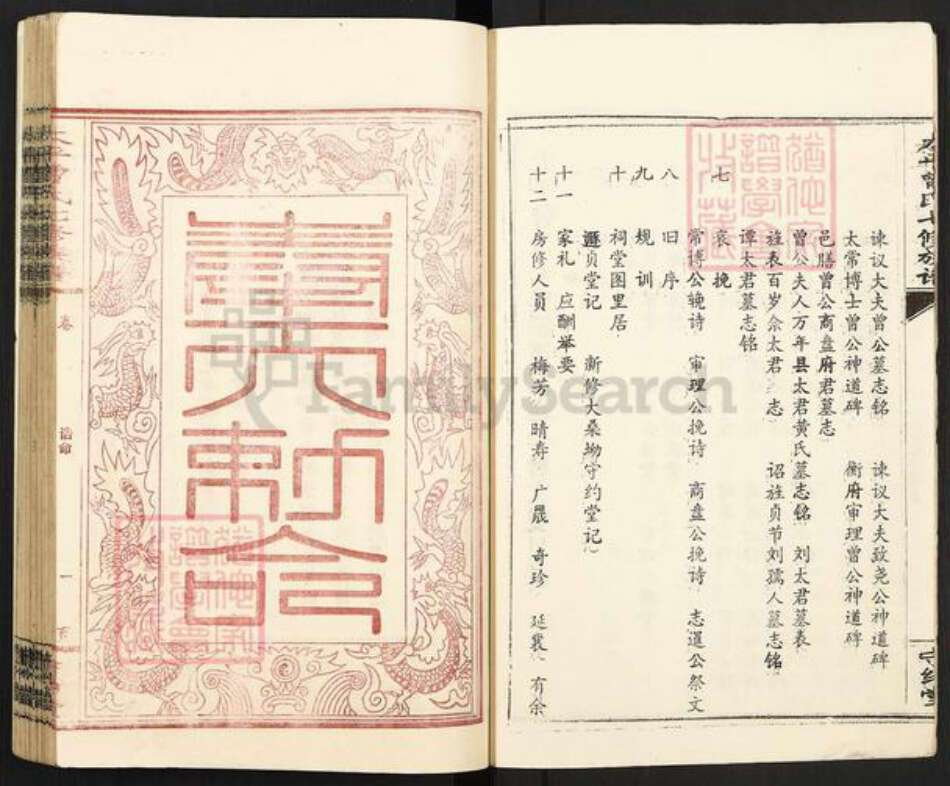 谏议大夫曾公墓志铭 谏议大夫致尧公神道碑
太常博士曾公神道碑 衡府审理曾公神道碑
邑膳曾公商盘府君墓志
曾公夫人万年县太君黄氏墓志铭 刘太君墓表
旌表百岁佘太君 志 诏旌贞节刘孺人墓志铭
谭太君墓志铭
七 哀挽
常博公挽诗 审理公挽诗 商盘公挽诗 志暹公祭文
八 旧序
九 规训
十 祠堂图里居
贞堂记 新修大桑坳守约堂记
十一 家礼 应酬举要
十二 房修人员 梅芳 晴寿 广晟 奇珍 延裳 有余
守约堂
FamilySearch
奉天敕命
卷
诰命
一